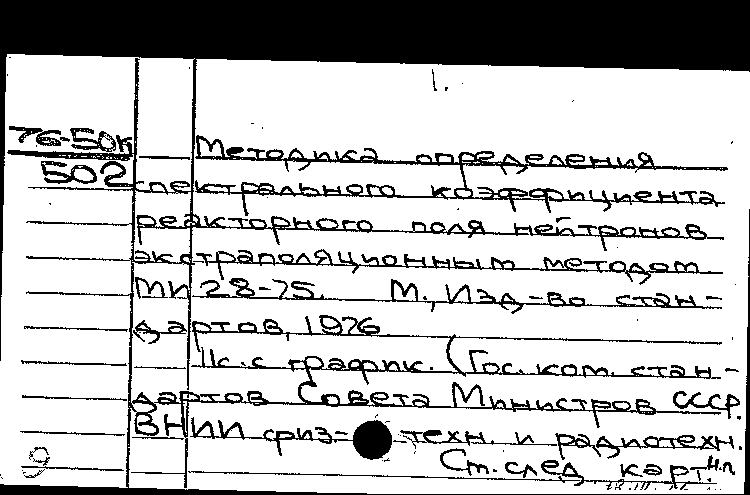 1.
76-50к
502
Методика определения
спектрального коэффициента
реакторного поля нейтронов
экстраполяционным методом
МИ 28-75. М., Изд-во стан-
дартов, 1976
11с. с график. (Гос. ком. стан-
дартов Совета Министров СССР.
ВНИИ физ-техн. и радиотехн.
9 Ст. след карт. н.п